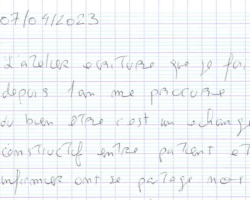 07/09/2023
L'atelier ecriture que je fai
depuis 1an me procure
du bien etre c'est un echange
constructif entre patient et
infirmier ont se partage nos